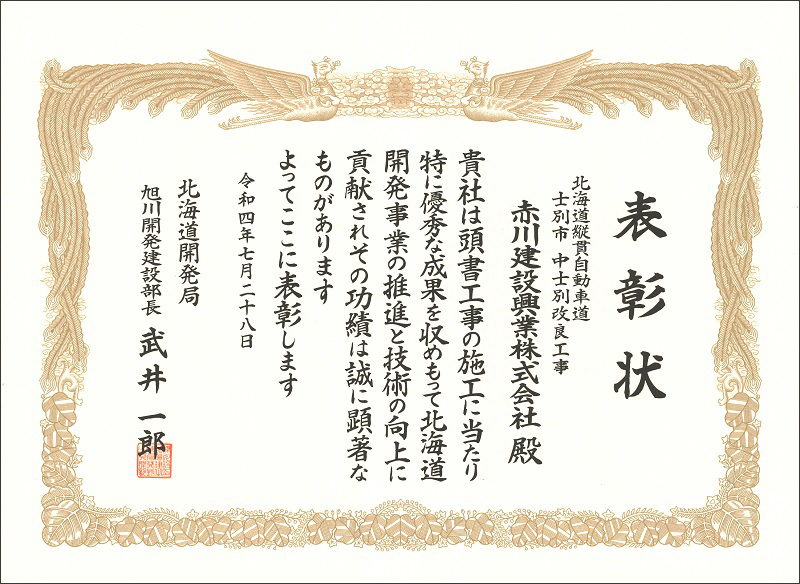 表彰状
北海道縦貫自動車道
士別市 中士別改良工事
赤川建設興業株式会社 殿
貴社は頭書工事の施工に当たり
特に優秀な成果を収めもって北海道
開発事業の推進と技術の向上に
貢献されその功績は誠に顕著な
ものがあります
よってここに表彰します
令和四年七月二十八日
北海道開発局
旭川開発建設部長 武井一郎